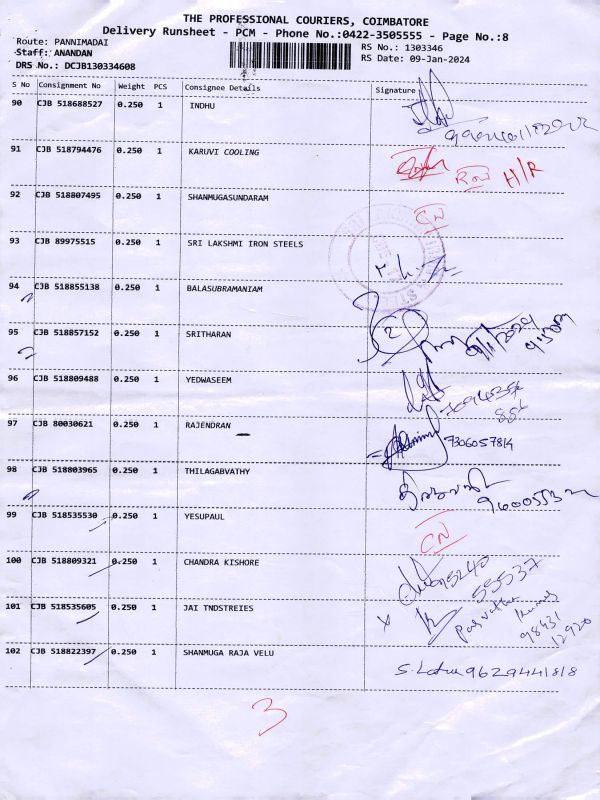 THE PROFESSIONAL COURIERS, COIMBATORE
Delivery Runsheet - PCM - Phone No.:0422-3505555 - Page No.:8
Route: PANNIMADAI
Staff: ANANDAN
DRS No.: DCJB130334608
RS No.: 1303346
RS Date: 09-Jan-2024
S No Consignment No Weight PCS Consignee Details Signature
90 CJB 518688527 0.250 1 INDHU
91 CJB 518794476 0.250 1 KARUVI COOLING H/R
92 CJB 518807495 0.250 1 SHANMUGASUNDARAM CN
93 CJB 89975515 0.250 1 SRI LAKSHMI IRON STEELS
94 CJB 518855138 0.250 1 BALASUBRAMANIAM
95 CJB 518857152 0.250 1 SRITHARAN 2
96 CJB 518809488 0.250 1 YEDWASEEM
97 CJB 80030621 0.250 1 RAJENDRAN
98 CJB 518803965 0.250 1 THILAGABVATHY
99 CJB 518535530 0.250 1 YESUPAUL CN
100 CJB 518809321 0.250 1 CHANDRA KISHORE
55537
101 CJB 518535605 0.250 1 JAI TNDSTREIES
98431
12920
102 CJB 518822397 0.250 1 SHANMUGA RAJA VELU 9629441818
3